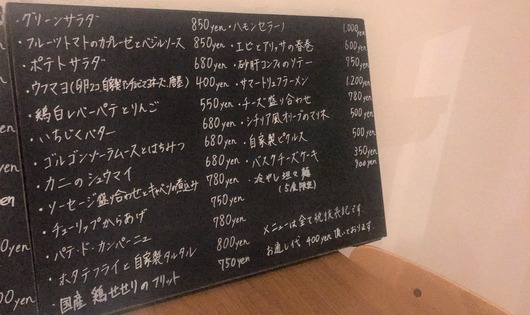 ・グリーンサラダ 850yen
・フルーツトマトのカプレーゼとバジルソース 850yen
・ポテトサラダ 680yen
・ウフマヨ(卵2コ 自家製マヨネーズ、燻製) 400yen
・鶏白レバーパテとりんご 550yen
・いちじくバター 680yen
・ゴルゴンゾーラムースとはちみつ 680yen
・カニのシュウマイ 680yen
・ソーセージ盛り合わせとキャベツの煮込み 780yen
・チューリップからあげ 750yen
・パテ・ド・カンパーニュ 780yen
・ホタテフライと自家製タルタル 800yen
・国産 鶏せせりのフリット 750yen
・ハモンセラーノ 1,000yen
・エビとアリッサの春巻 600yen
・砂肝コンフィのソテー 750yen
・サマートリュフラーメン 1,200yen
・チーズ盛り合わせ 780yen
・シチリア風オリーブのマリネ 500yen
・自家製ピクルス 500yen
・バスクチーズケーキ 350yen
・冷やし担々麺 900yen
(5食限定)
メニューは全て税抜表記です。
お通し代 400yen 頂いております。